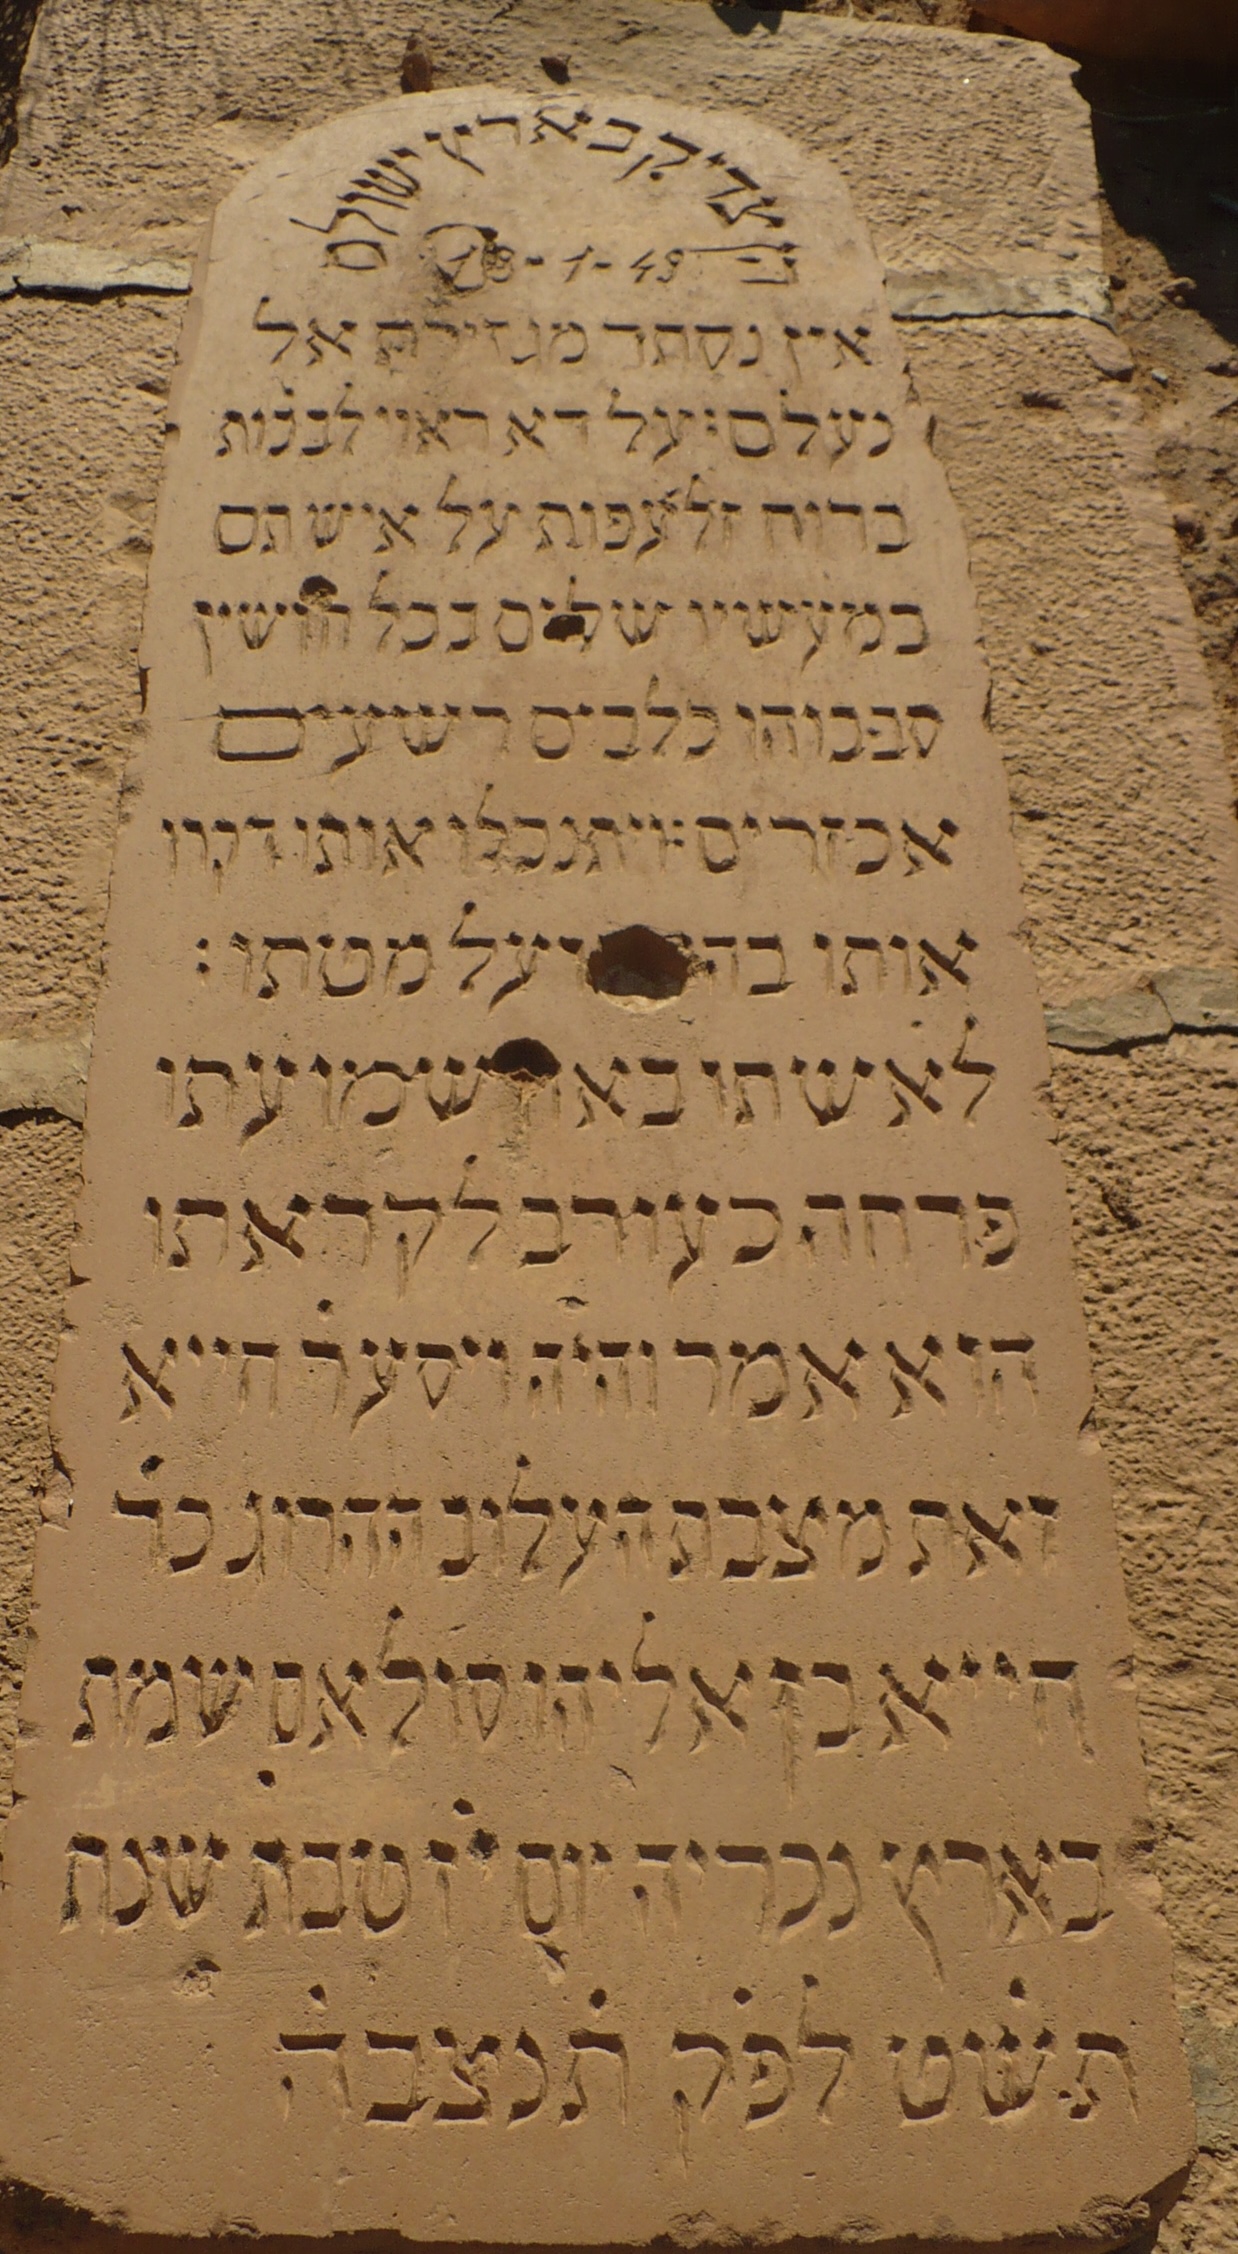 צדיק בארץ ישולם
18-1-49
אין נסתר מגזירת אל
נעלם: על דא ראוי לבכות
ברוח זלעפות על איש תם
במעשיו שלים בכל חושין
סבבוהו כלבים רשעים
אכזרים: ויתנכלו אותו דקרו
אותו על מטתו:
לאשתו שמועתו
פרחה כעורב לקראתו
הוא אמר והיה ויסער חייא
זאת מצבת העלוב ההרוג כר
חייא בן אליהו סולאם שמת
בארץ נכריה יום י״ז טבת שנת
תשט לפק תנצבה